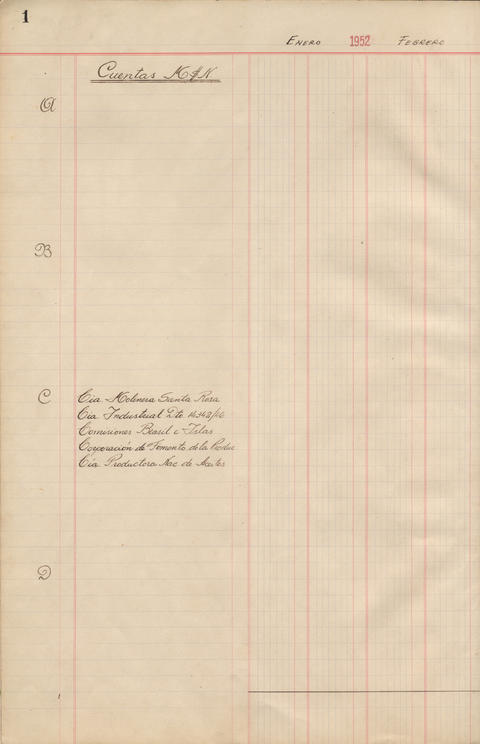 1
Enero 1952 Febrero
Cuentas M$N.
A
B
C Cia Molinera Santa Rosa
Cia Industrial Dto.
Comisiones Brasil e Islas
Corporación de Fomento de la Produc
Cía Productora Nac de Aceites
D